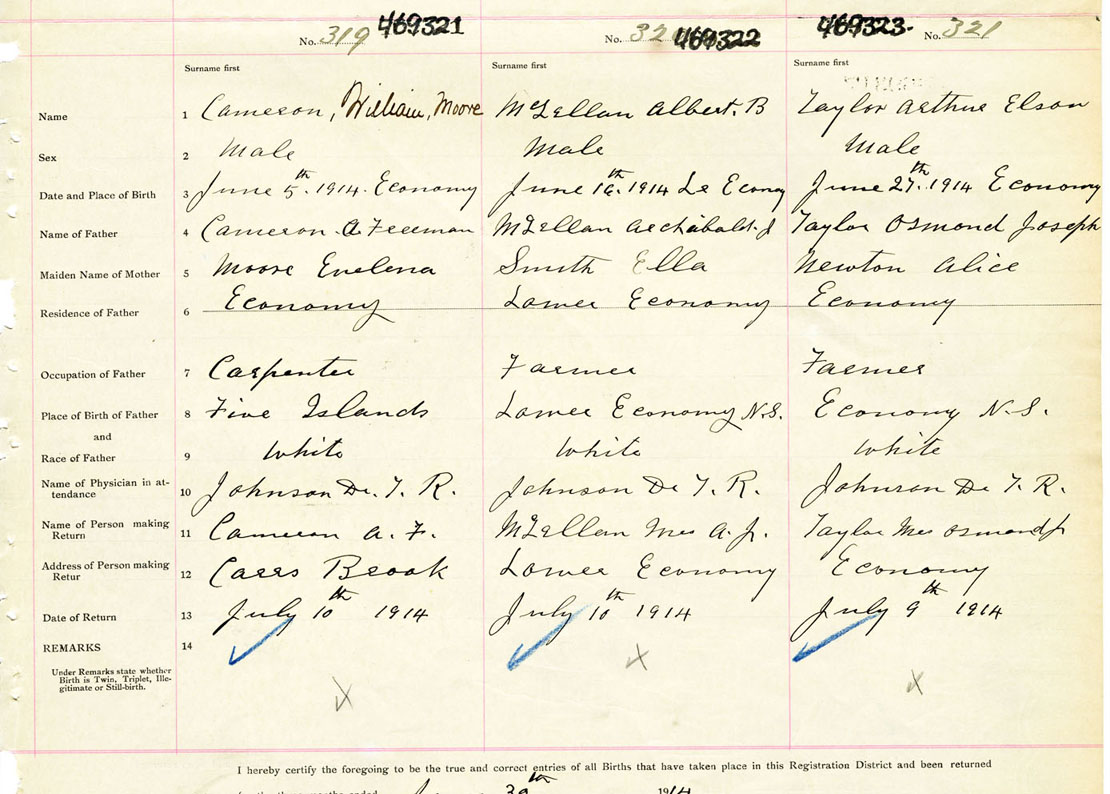 No. 319 469321 No. 469322 469323 No. 321
Surname first Surname first Surname first
Name 1 Cameron, William, Moore McLellan Albert. B Taylor Arthur Elson
Sex 2 Male Male Male
Date and Place of Birth 3 June 5th 1914. Economy June 16th 1914 Lr Economy June 27th 1914 Economy
Name of Father 4 Cameron. A Freeman McLellan Archibald. J Taylor Osmond Joseph
Maiden Name of Mother 5 Moore Evelena Smith Ella Newton Alice
Residence of Father 6 Economy Lower Economy Economy
Occupation of Father 7 Carpenter Farmer Farmer
Place of Birth of Father 8 Five Islands Lower Economy N.S. Economy N.S.
and
Race of Father 9 White White White
Name of Physician in at-
tendance 10 Johnson Dr. T. R. Johnson Dr T. R. Johnson Dr T. R.
Name of Person making
Return 11 Cameron A. F. McLellan Mrs A. J. Taylor Mrs Osmond J
Address of Person making
Retur 12 Carrs Brook Lower Economy Economy
Date of Return 13 July 10th 1914 July 10th 1914 July 9th 1914
REMARKS 14
Under Remarks state whether
Birth is Twin, Triplet, Ille-
gitimate or Still-birth.
I hereby certify the foregoing to be the true and correct entries of all Births that have taken place in this Registration District and been returned
for the three months ended 30th 1914